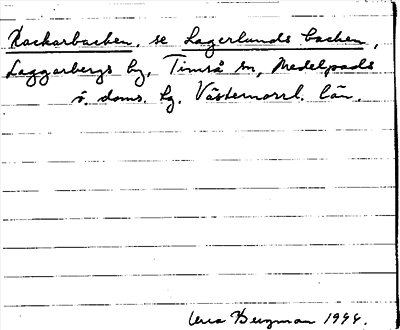 Kackarbacken, se Lagerlunds backen,
Laggarbergs by, Timrå sn, Medelpads
ö. doms. hg. Västernorrl. län.
Bergman 1944.